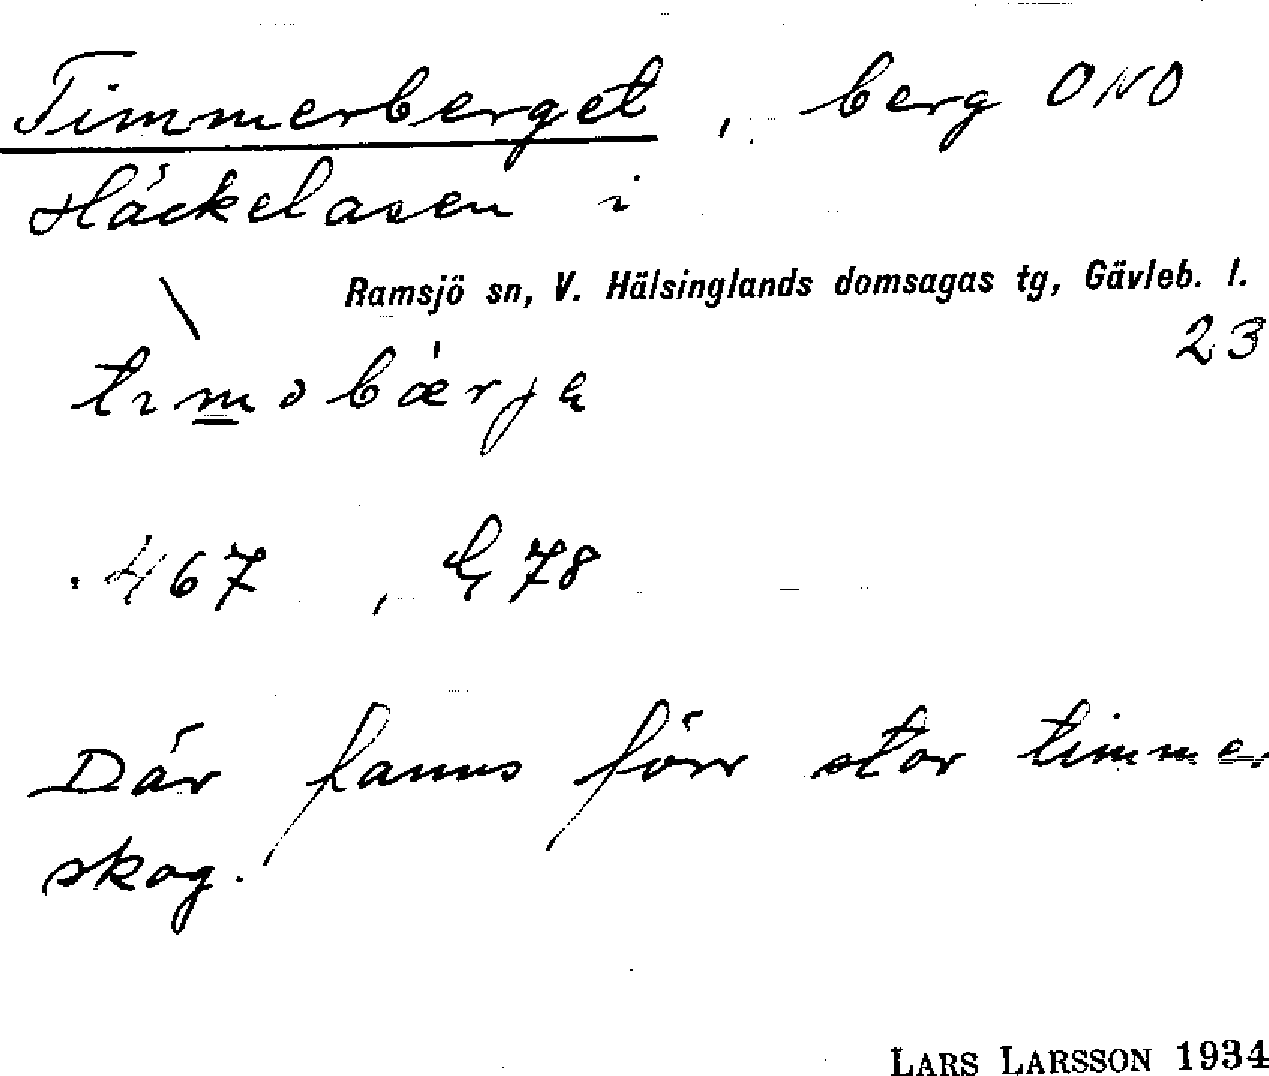 Timmerberget, berg ONO
Häckelåsen i
Ramsjö sn, V. Hälsinglands domsagas tg, Gävleb. l.
23
467
Där fanns förr stor timmer
skog.
LARS LARSSON 1934